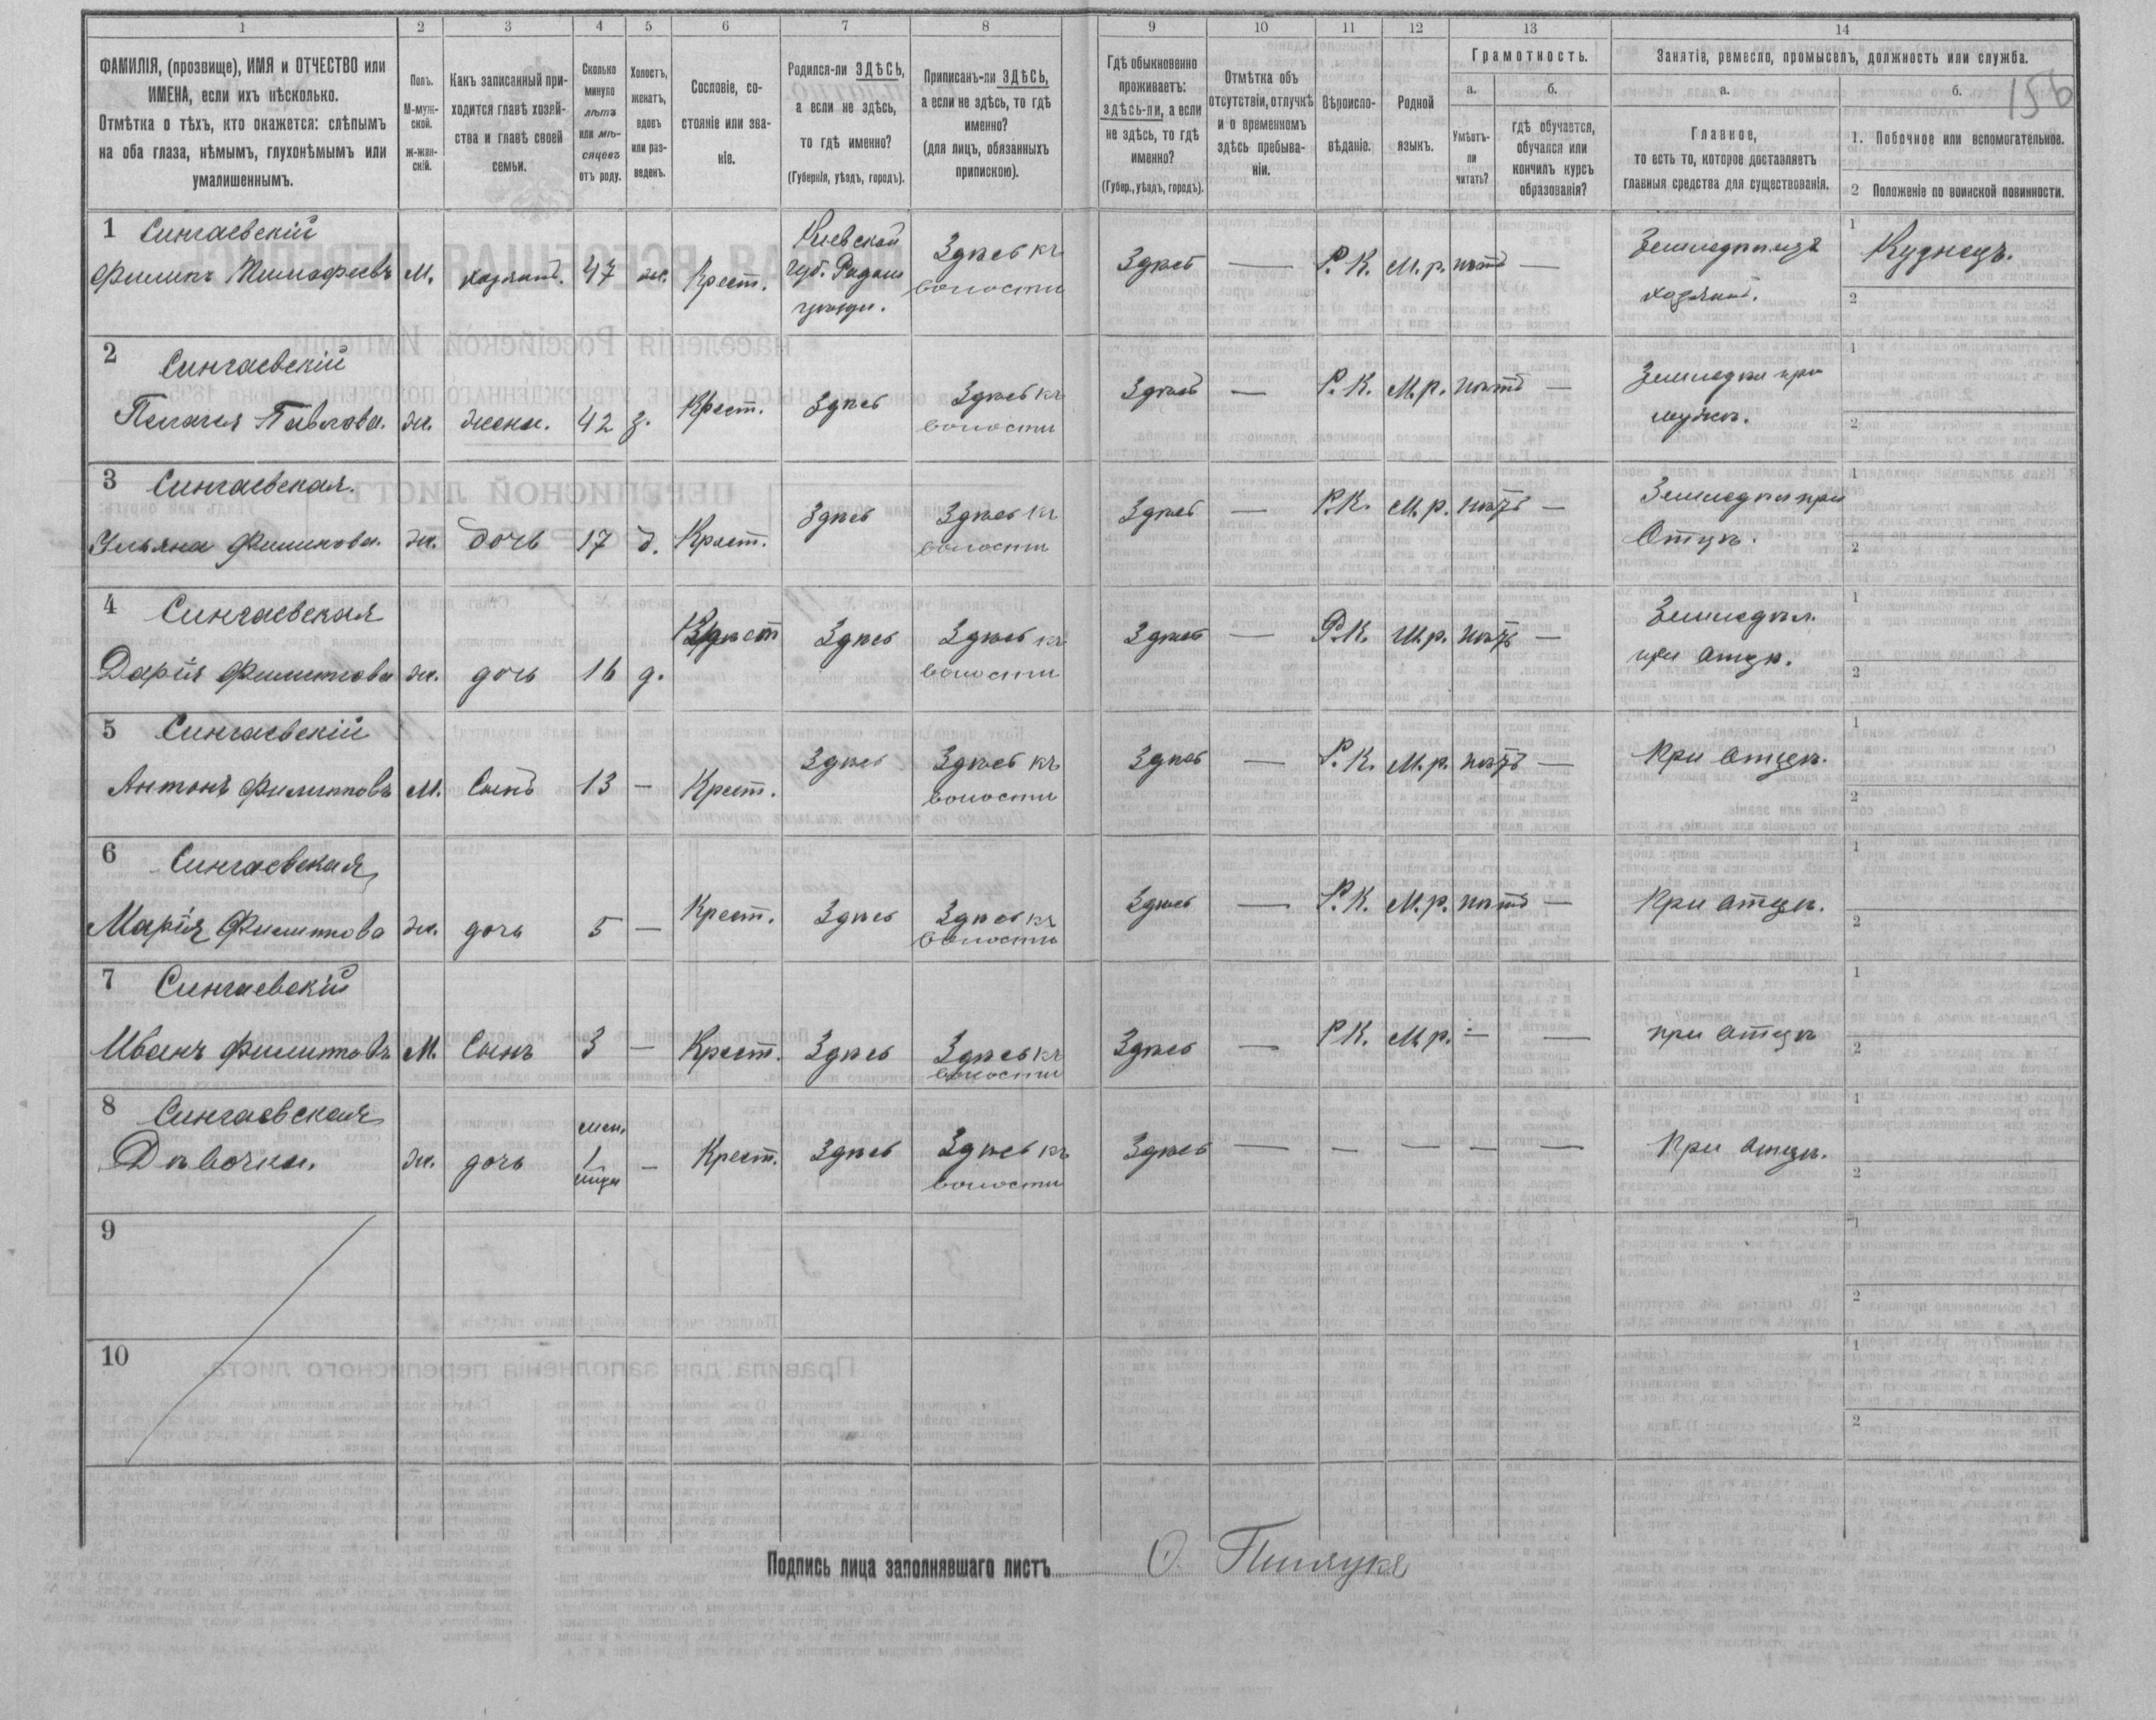 1 2 3 4 5 6 7 8 9 10 11 12 13 14
ФАМИЛІЯ, (прозвище), ИМЯ и ОТЧЕСТВО или
ИМЕНА, если ихъ нѣсколько.
Отмѣтка о тѣхъ, кто окажется: слѣпымъ
на оба глаза, нѣмымъ, глухонѣмымъ или
умалишеннымъ.
Полъ.
М-муж-
ской.
Ж-жен-
скій.
Какъ записанный при-
ходится главѣ хозяй-
ства и главѣ своей
семьи.
Сколько
минуло
лѣтъ
или мѣ-
сяцевъ
отъ роду.
Холостъ,
женатъ,
вдовъ
или раз-
веденъ.
Сословіе, со-
стояніе или зва-
ніе.
Родился-ли ЗДѢСЬ,
а если не здѣсь,
то гдѣ именно?
(Губернія, уѣздъ, городъ).
Приписанъ-ли ЗДѢСЬ,
а если не здѣсь, то гдѣ
именно?
(для лицъ, обязанныхъ
припискою).
Гдѣ обыкновенно
проживаетъ:
здѣсь-ли, а если
не здѣсь, то гдѣ
именно?
(Губер., уѣздъ, городъ).
Отмѣтка объ
отсутствіи, отлучкѣ
и о временномъ
здѣсь пребыва-
ніи.
Вѣроиспо-
вѣданіе.
Родной
языкъ.
Грамотность.
а.
Умѣетъ-
ли
читать?
б.
гдѣ обучается,
обучался или
кончилъ курсъ
образованія?
Занятіе, ремесло, промыселъ, должность или служба.
а.
Главное,
то есть то, которое доставляетъ
главныя средства для существованія.
б.
1. Побочное или вспомогательное.
2 Положеніе по воинской повинности.
156
1 Сингаевскій
Филипъ Тимофеевъ М. хозяинъ. 47 ж. Крест.
Кіевской
губ. Радом
уѣзди.
Здѣсь къ
волости
Здѣсь — Р. К. М. р. нѣтъ —
Земледѣлецъ
хозяинъ.
1 Кузнецъ.
2
2 Сингаевскій
Пелагея Павлова. ж. жена. 42 з. Крест. Здѣсь
Здѣсь къ
волости
Здѣсь — Р. К. М. р. нѣтъ —
Земледѣл при
мужѣ.
1
2
3 Сингаевская.
Ульяна Филипова. ж. дочь 17 д. Крест. Здѣсь
Здѣсь къ
волости
Здѣсь — Р.К. М. р. нѣтъ —
Земледѣл при
Отцѣ.
1
2
4 Сингаевская
Дарія Филиппова ж. дочь 16 д. Крест Здѣсь
Здѣсь къ
волости
Здѣсь — Р.К. М.р. нѣтъ —
Земледѣл.
при отцѣ.
1
2
5 Сингаевскій
Антонъ Филипповъ М. Сынъ 13 — Крест. Здѣсь
Здѣсь къ
волости
Здѣсь — Р. К. М. р. нѣтъ —
При отцѣ.
1
2
6 Сингаевская
Марія Филиппова ж. дочь 5 — Крест. Здѣсь
Здѣсь къ
волости
Здѣсь — Р. К. М. р. нѣтъ —
При отцѣ.
1
2
7 Сингаевскій
Иванъ Филипповъ М. Сынъ 3 — Крест. Здѣсь
Здѣсь къ
волости
Здѣсь — Р К. М. р. — —
при отцѣ
1
2
8 Сингаевская
Дѣвочка. ж. дочь
1
— Крест. Здѣсь
Здѣсь къ
волости
Здѣсь — — — — —
При отцѣ.
1
2
9
1
2
10
1
2
Подпись лица заполнявшаго листъ